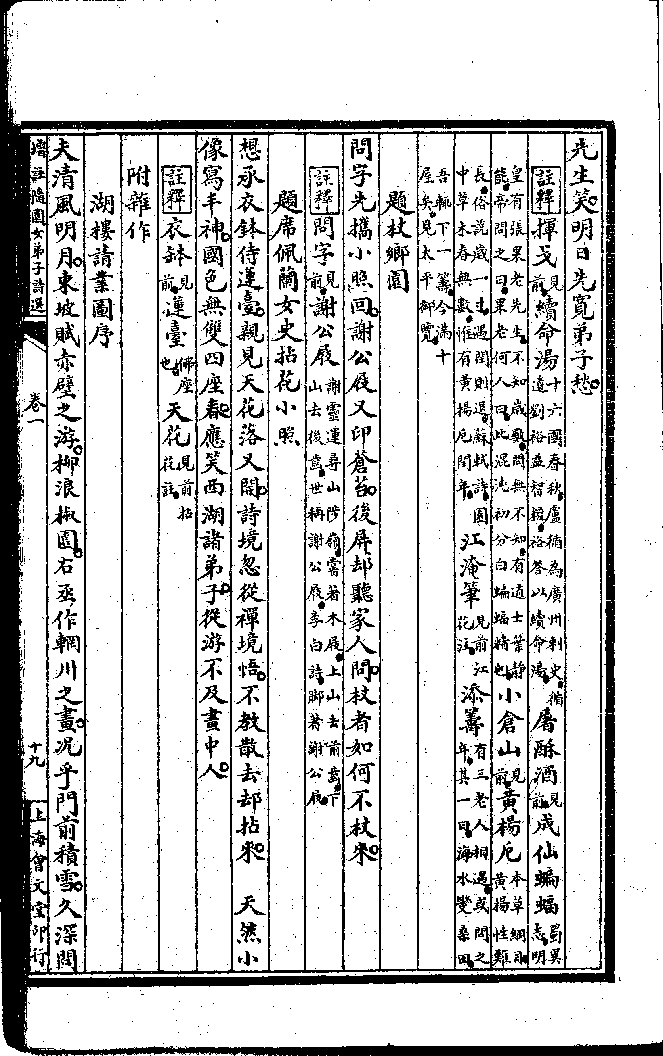 先生笑明日先寬弟子愁
註釋揮戈見前續命湯十六國春秋盧循為廣州刺史循遺劉裕益智粽裕答以續命湯屠酥酒見前成仙蝙蝠蜀異志明
皇有張果老先生不知歲數問無不知有道士葉靜能帝問之曰果老何人曰此混沌初分白蝙蝠精也小倉山見前黃楊厄本草綱目黃楊性難
長俗說歲一寸遇閏則退蘇軾詩園中草木春無數惟有黃楊厄閏年江淹筆見前江花注添籌有三老人相遇或問之年其一曰海水變桑田
吾輒下一籌今滿十屋矣見太平御覽
題杖鄉圖
問字先攜小照回謝公屐又印蒼苔後屏却聽家人問杖者如何不杖來
註釋問字見前謝公屐謝靈運尋山陟嶺當著木屐上山去前齒下山去後齒世稱謝公屐李白詩脚著謝公屐
題席佩蘭女史拈花小照
想承衣鉢侍蓮臺親見天花落又開詩境忽從禪境悟不教散去却拈來　天然小
像寫丰神國色無雙四座春應笑西湖諸弟子從游不及畫中人
註釋衣鉢見前蓮臺佛座也天花見前拈花註
附雜作
湖樓請業圖序
夫清風明月東坡賦赤壁之游柳浪椒園右丞作輞川之畫况乎門前積雪久深閏
增註隨園女弟子詩選
卷一
十九
上海會文堂印行